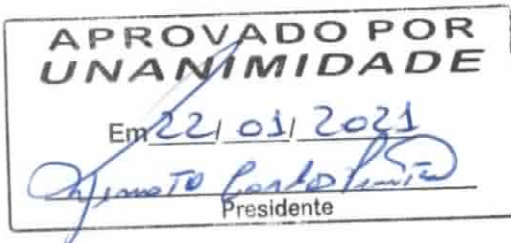 APROVADO POR
UNANIMIDADE
Em 22/01/2021
Presidente